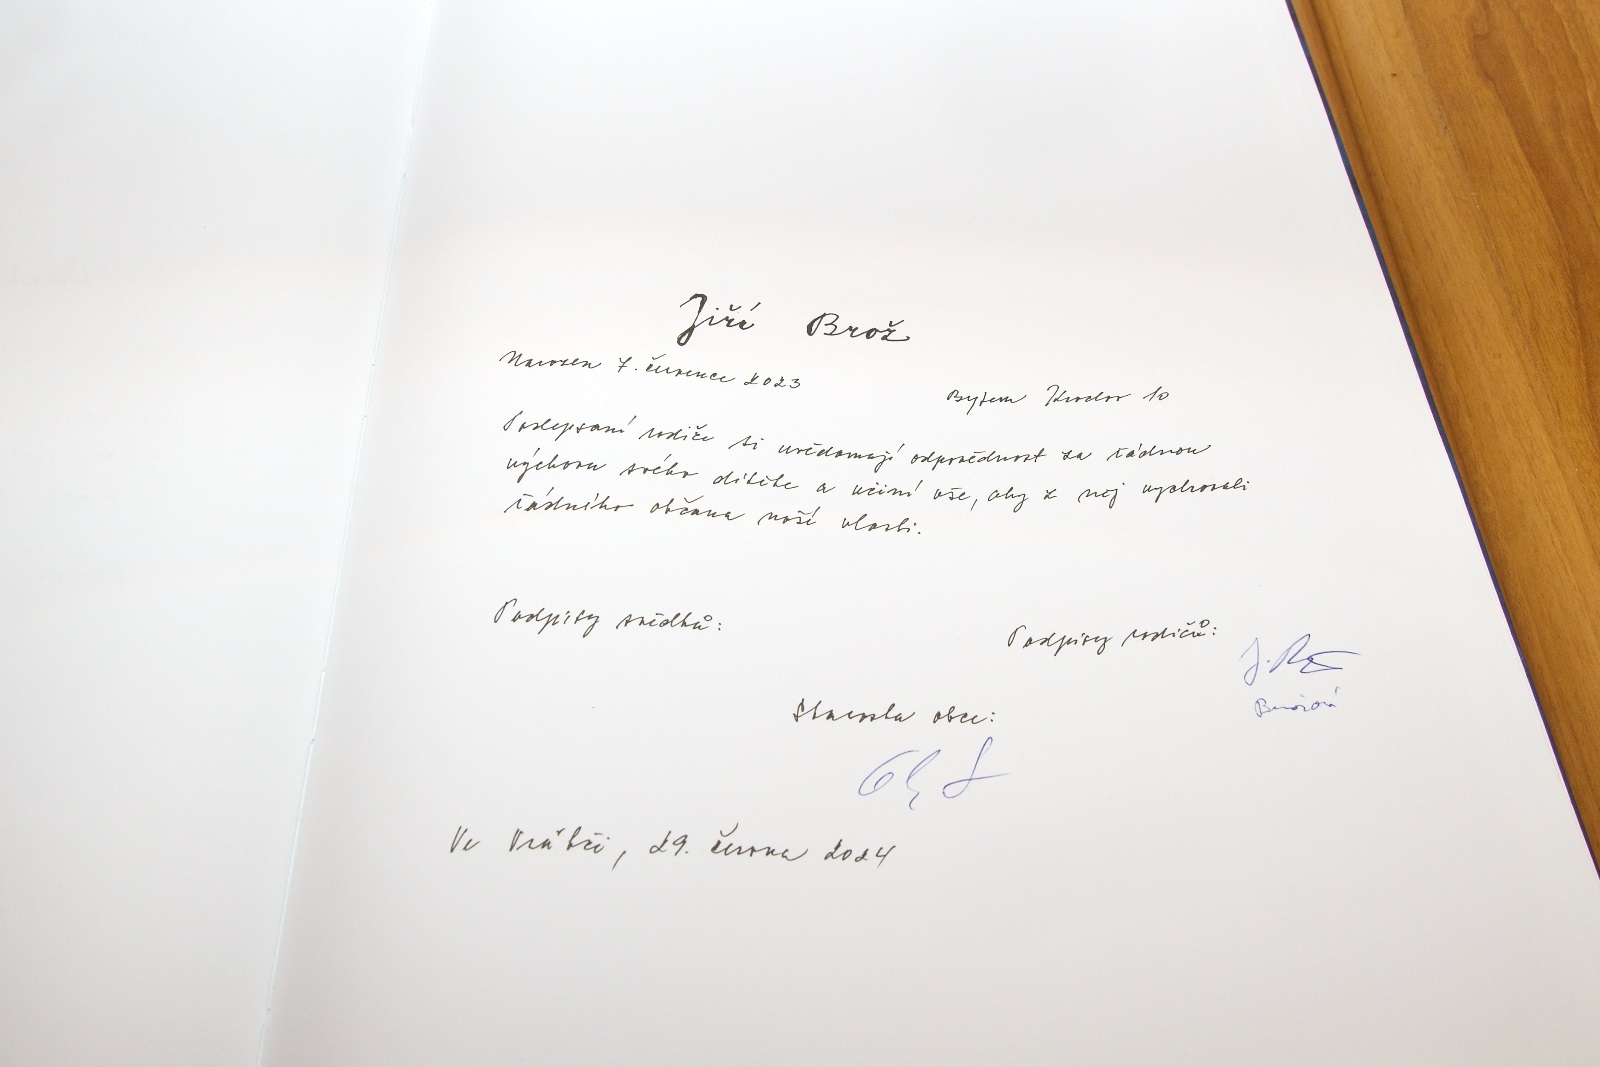 Jiří Brož
Narozen 7. července 2023
Bytem Kroclov 10
Podepsaní rodiče si uvědomují odpovědnost za řádnou
výchovu svého dítěte a učiní vše, aby z něj vychovali
řádného občana naší vlasti.
Podpisy svědků:
Podpisy rodičů:
Brožová
Starosta obce:
Ve Vrábči, 29. června 2024